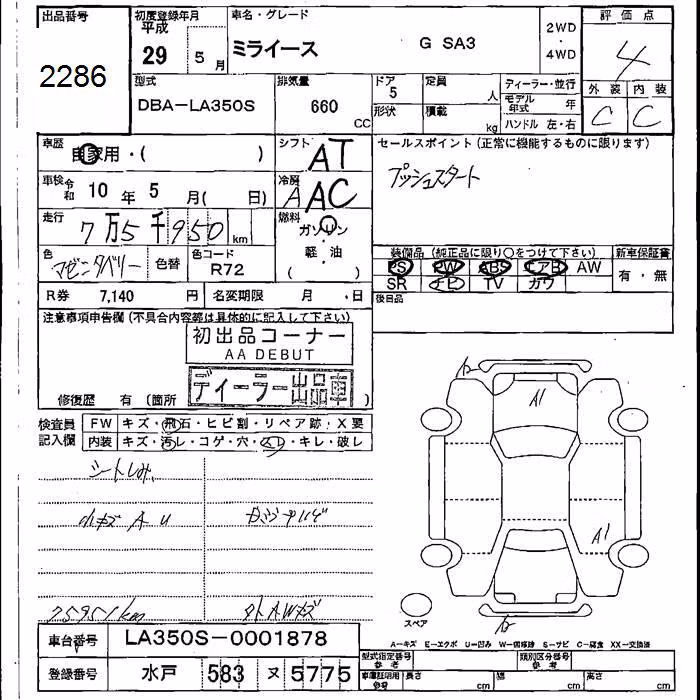 出品番号
2286
初度登録年月
平成
29 5 月
車名・グレード
ミライース G SA3
2WD
・
4WD
評価点
4
外装 内装
C C
型式
DBA-LA350S
排気量
660 CC
ドア
5
形状
定員
人
積載
kg
ディーラー・並行
モデル年式 年
ハンドル 左・右
車歴
自家用・( )
シフト
AT
セールスポイント (正常に機能するものに限ります)
プッシュスタート
車検 令和 10 年 5 月( 日)
冷房
A AC
走行
7万5千950 km
燃料
ガソリン
・
軽・油
( )
色
マゼンタベリー
色替
色コード
R72
装備品 (純正品に限り○をつけて下さい)
PS PW ABS エアB AW
SR ナビ TV カワ
新車保証書
有・無
R券 7,140 円
名変期限 月・日
後日品
注意事項申告欄 (不具合内容等は具体的に記入して下さい)
初出品コーナー
AA DEBUT
ディーラー出品車
修復歴 有 (箇所
検査員記入欄
FW キズ・飛石・ヒビ割・リペア跡・X要
内装 キズ・汚レ・コゲ・穴・スレ・キレ・破レ
シートしみ
小キズ A U
75951km
外AWキズ
A1
A1
スペア
A-キズ E-エクボ U-凹み W-補修跡 S-サビ C-腐食 XX-交換済
車台番号 LA350S-0001878
登録番号 水戸 583 ヌ 5775
型式指定番号
参考
類別区分番号
参考
車庫証明用
参考
長さ cm 幅 cm 高さ cm